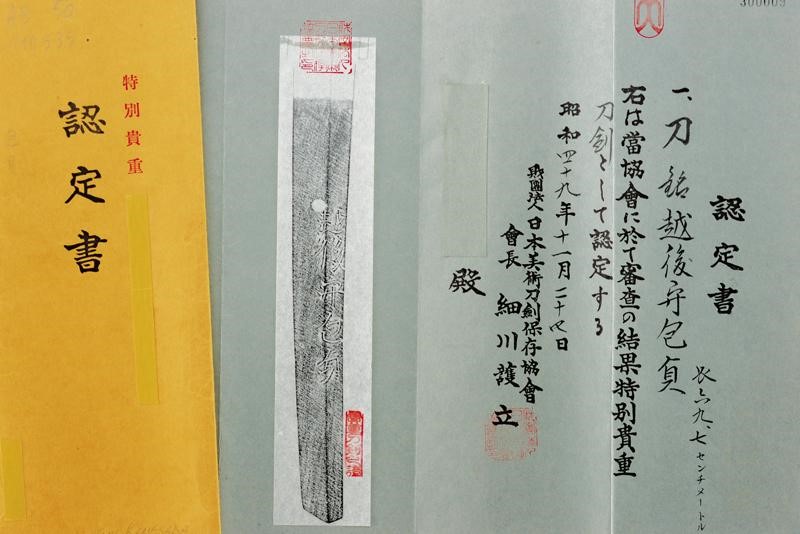 認定書
一、刀 銘 越後守包貞
長六九、七センチメートル
右は當協會に於て審査の結果特別貴重
刀劍として認定する
昭和四十九年十一月二十七日
財團法人 日本美術刀劍保存協會
會長 細川護立
殿
越後守包貞
特別貴重
認定書
300009